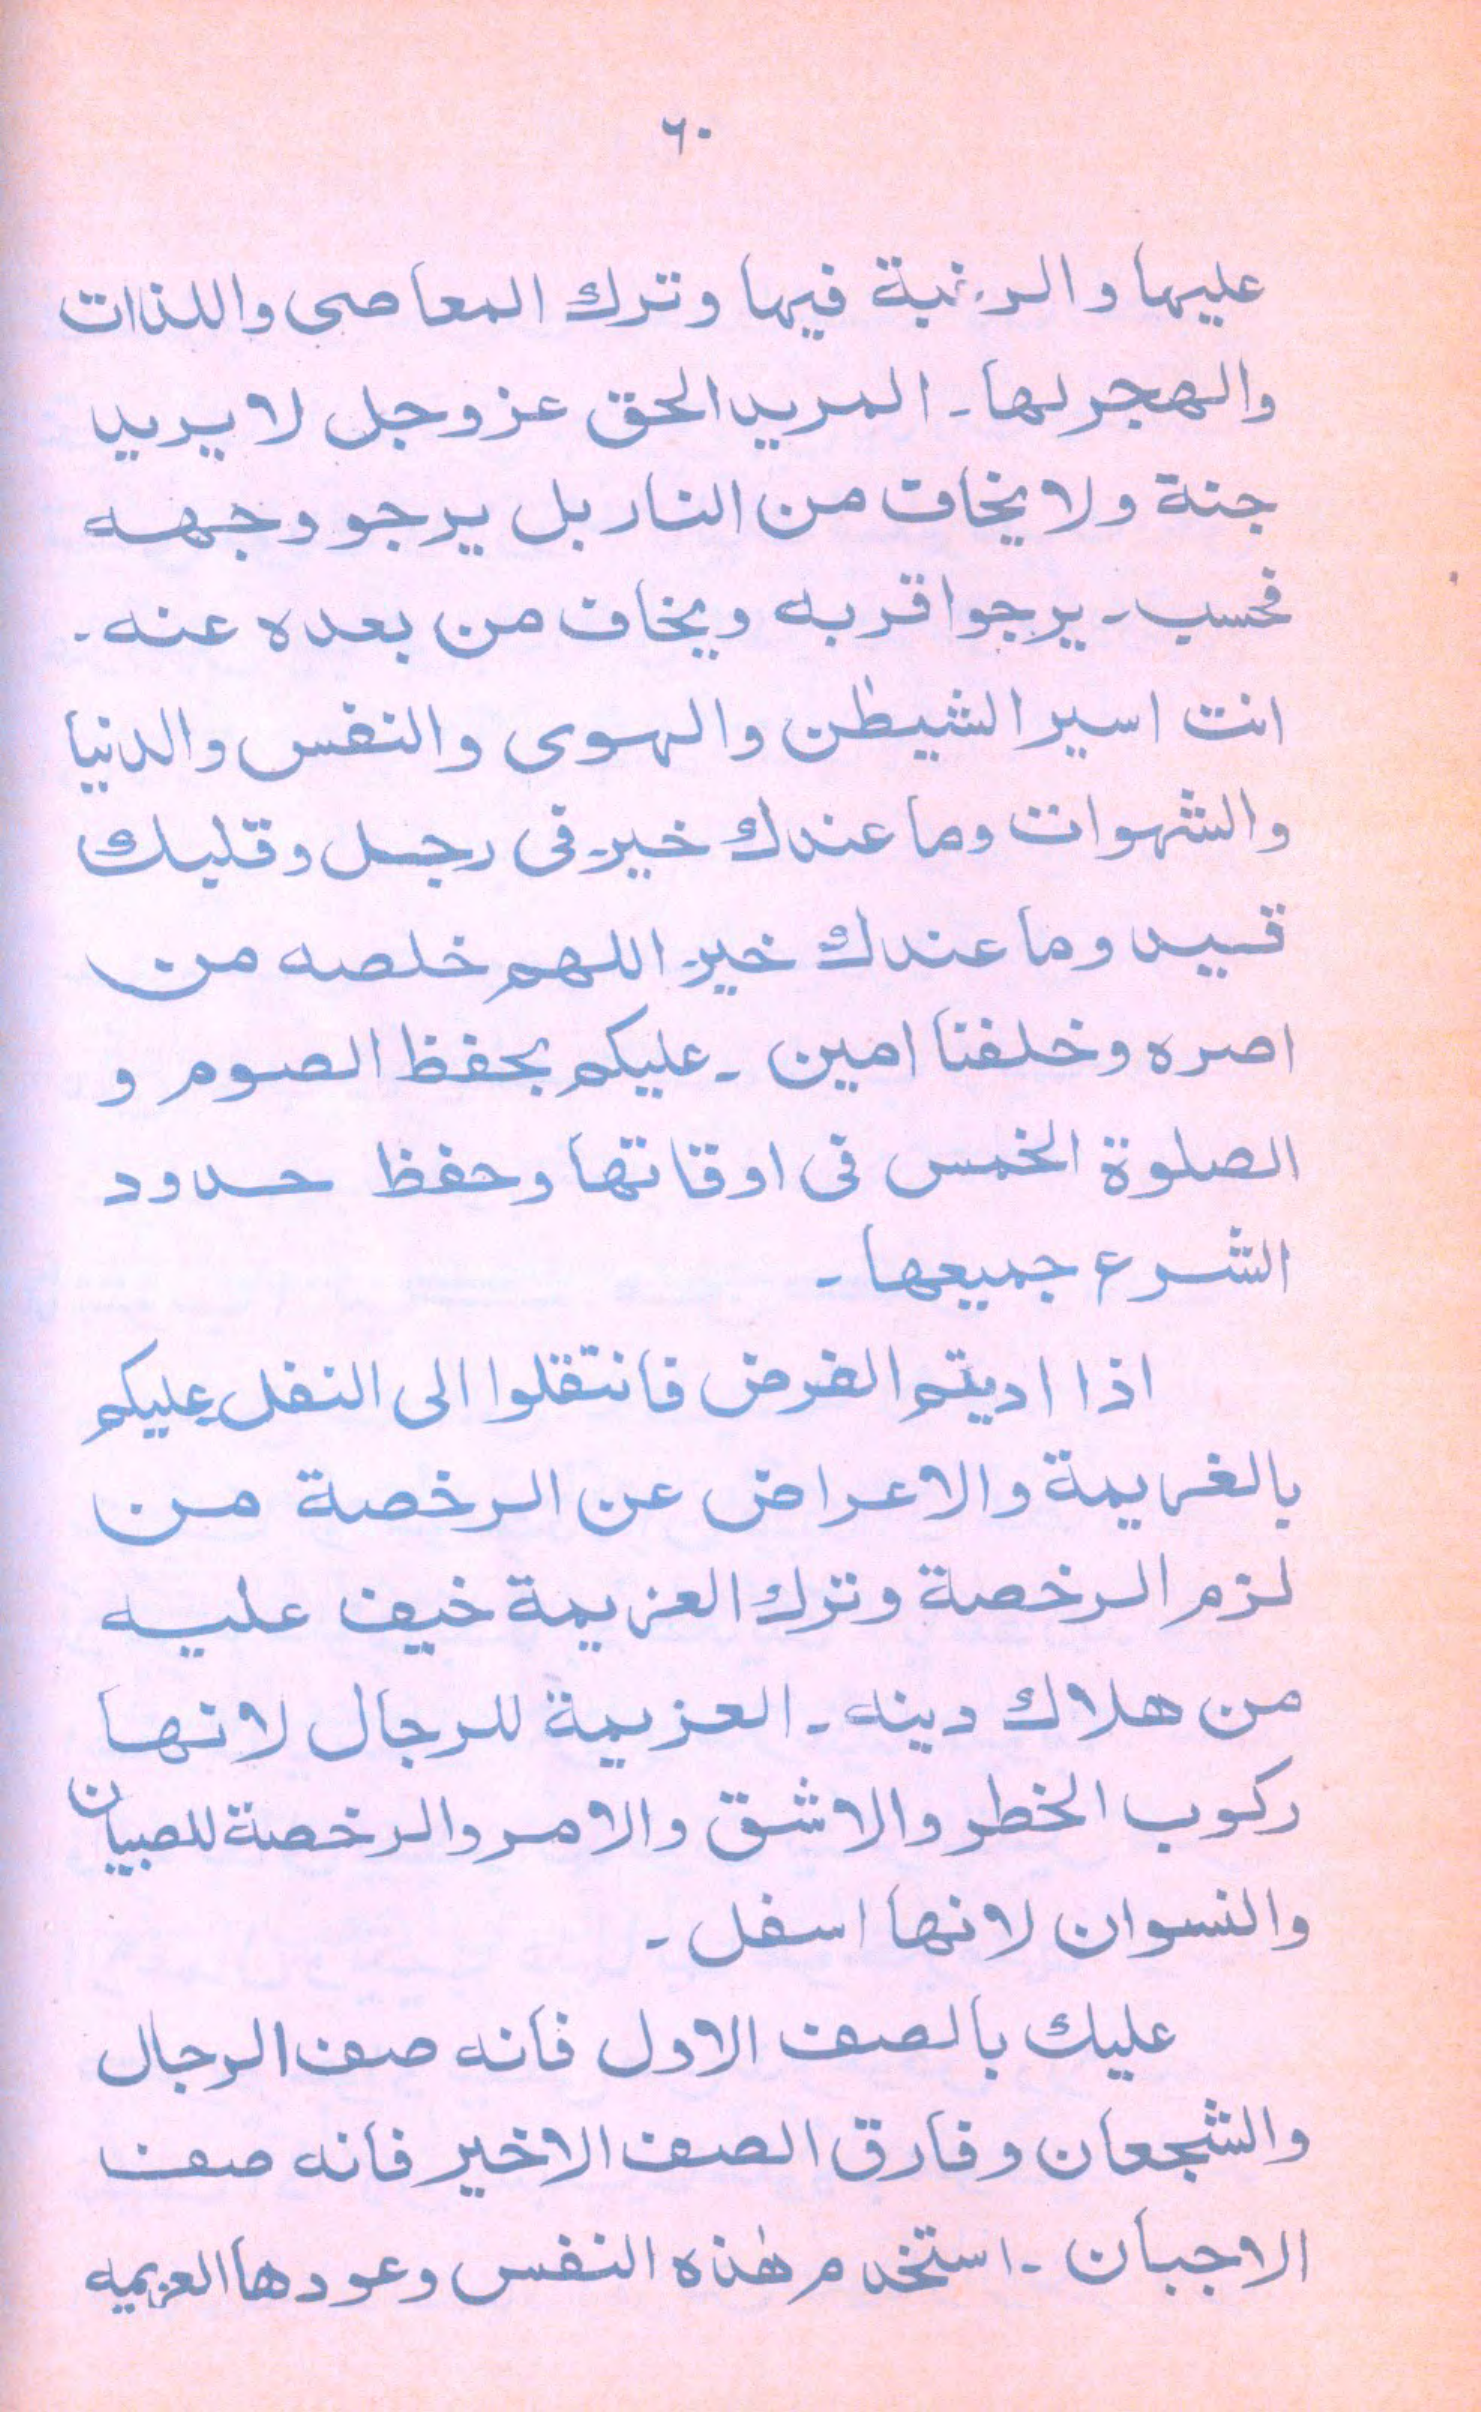 ٦٠
عليها والرغبة فيها وترك المعاصى واللذات
والهجر لها۔ المريد الحق عز وجل لا يريد
جنة ولا يخاف من النار بل يرجو وجهه
فحسب۔ يرجوا قربه ويخاف من بعده عنه۔
انت اسير الشيطٰن والهوى والنفس والدنيا
والشهوات وما عندك خير فى رجل وقلبك
قيد وما عندك خير اللهم خلصه من
اصره وخلفنا امين ۔ عليكم بحفظ الصوم و
الصلوة الخمس فى اوقاتها وحفظ حدود
الشرع جميعها۔
اذا اديتم الفرض فانتقلوا الى النفل عليكم
بالغريمة والاعراض عن الرخصة من
لزم الرخصة وترك العزيمة خيف عليه
من هلاك دينه۔ العزيمة للرجال لانها
ركوب الخطر والاشق والامر والرخصة للصبيان
والنسوان لانها اسفل۔
عليك بالصف الاول فانه صف الرجال
والشجعان وفارق الصف الاخير فانه صف
الاجبان ۔ استخدم هٰذه النفس وعودها العزيمه